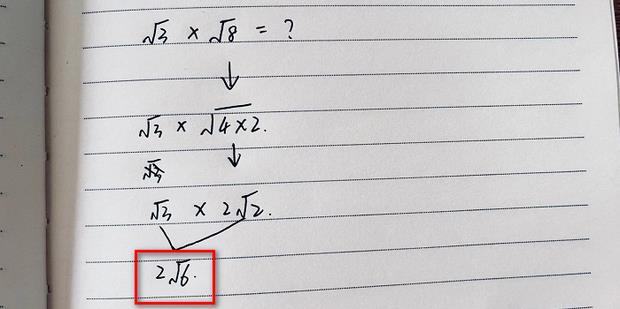 √3 × √8 = ?
↓
√3 × √4×2.
↓
√3 × 2√2.
2√6.